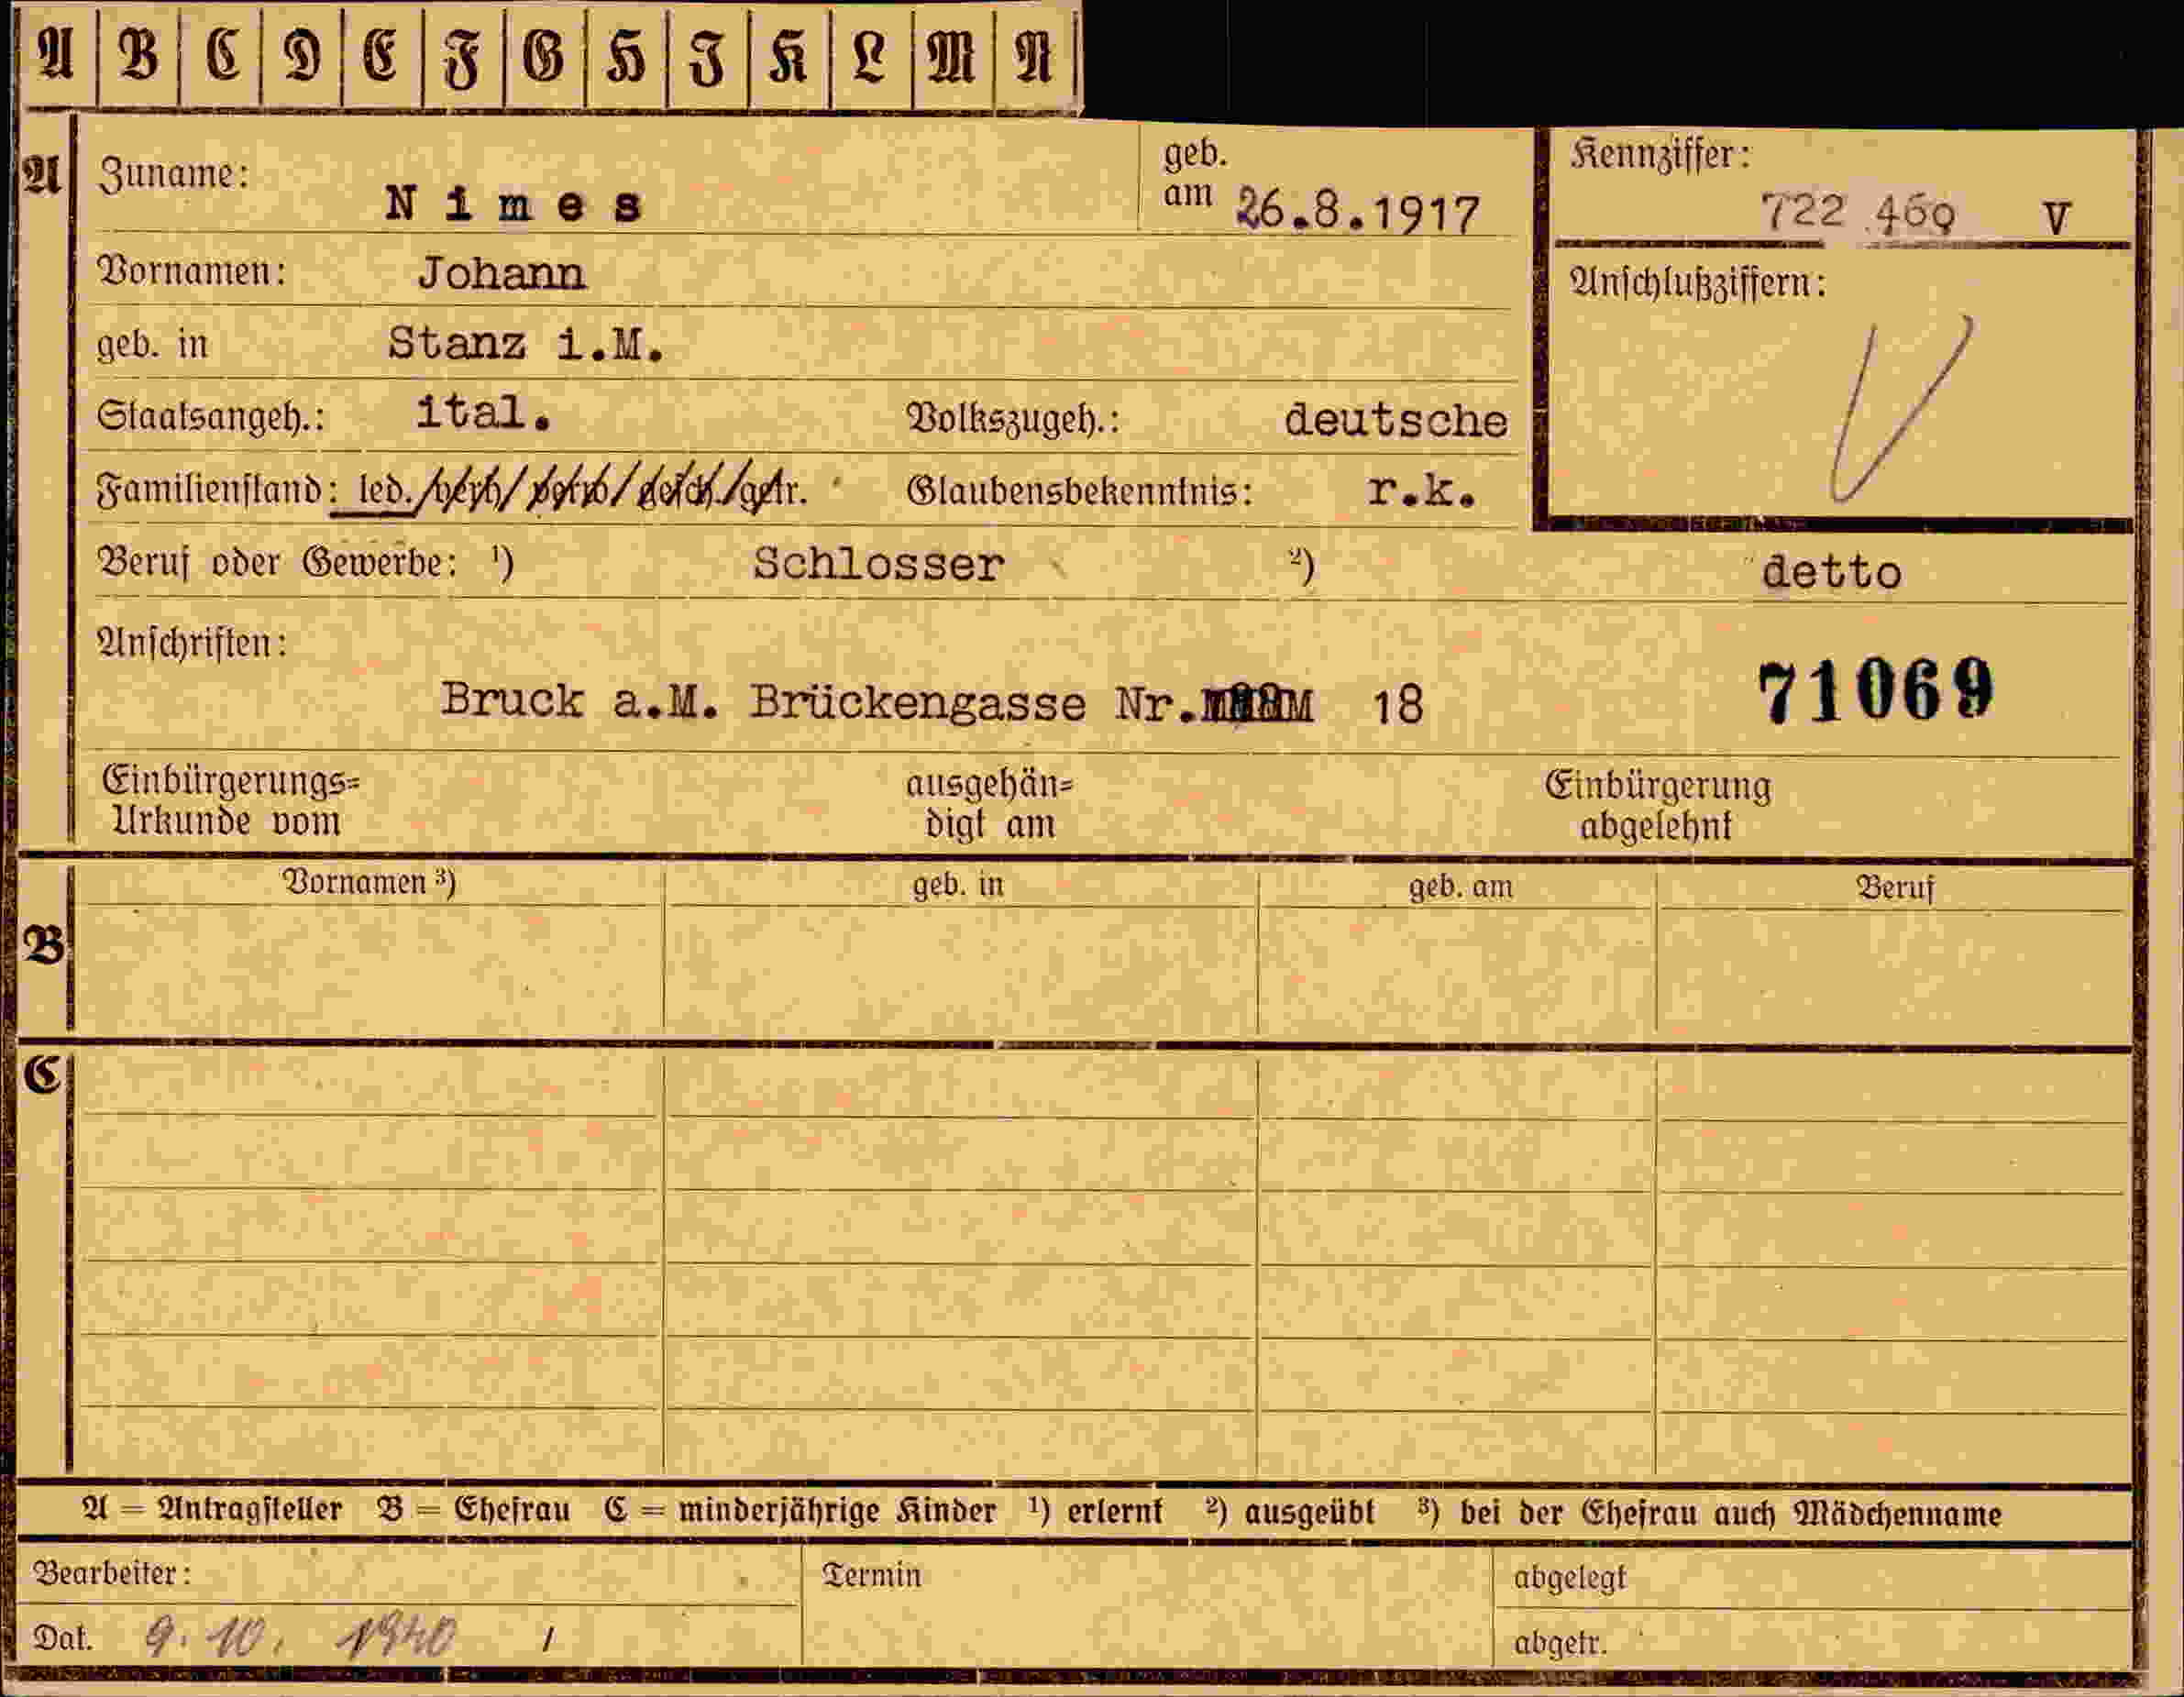 A B C D E F G H I K L M N
A Zuname: Nimes geb. am 26.8.1917 Kennziffer: 722 469 V
Vornamen: Johann Anschlußziffern:
geb. in Stanz i.M.
Staatsangeh.: ital. Volkszugeh.: deutsche
Familienstand: led./verh/verw/gesch./getr. Glaubensbekenntnis: r.k.
Beruf oder Gewerbe: ¹) Schlosser ²) detto
Anschriften:
Bruck a.M. Brückengasse Nr. 18 71069
Einbürgerungs= ausgehän= Einbürgerung
Urkunde vom digt am abgelehnt
Vornamen ³) geb. in geb. am Beruf
B
C
A = Antragsteller B = Ehefrau C = minderjährige Kinder ¹) erlernt ²) ausgeübt ³) bei der Ehefrau auch Mädchenname
Bearbeiter: Termin abgelegt
Dat. 9. 10. 1940 abgetr.